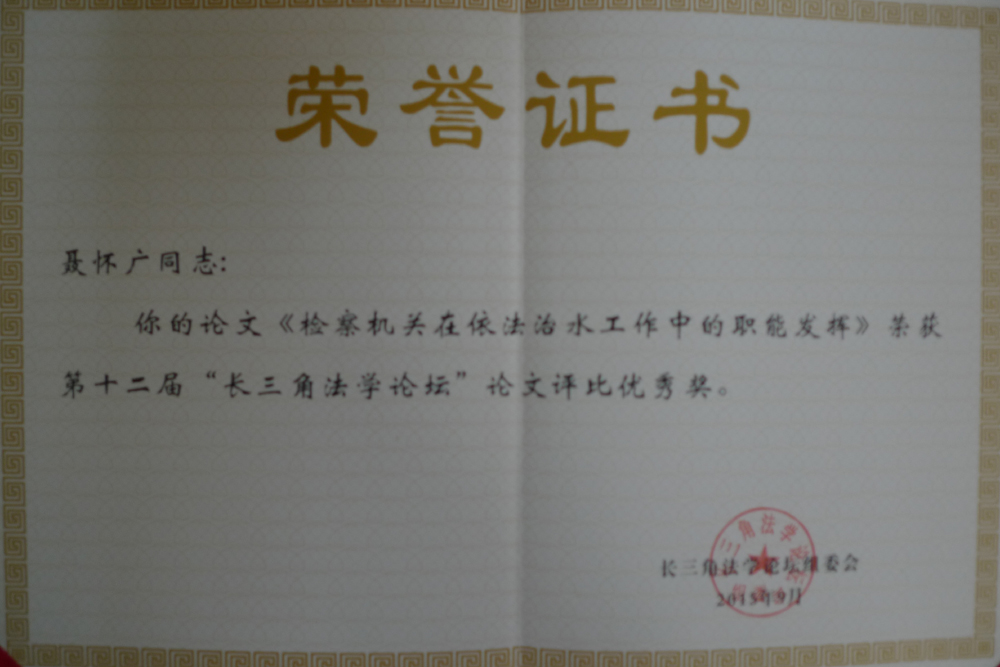 荣誉证书
聂怀广同志:
你的论文《检察机关在依法治水工作中的职能发挥》荣获
第十二届“长三角法学论坛”论文评比优秀奖。
三角法学论坛
长三角法学论坛组委会
2015年9月